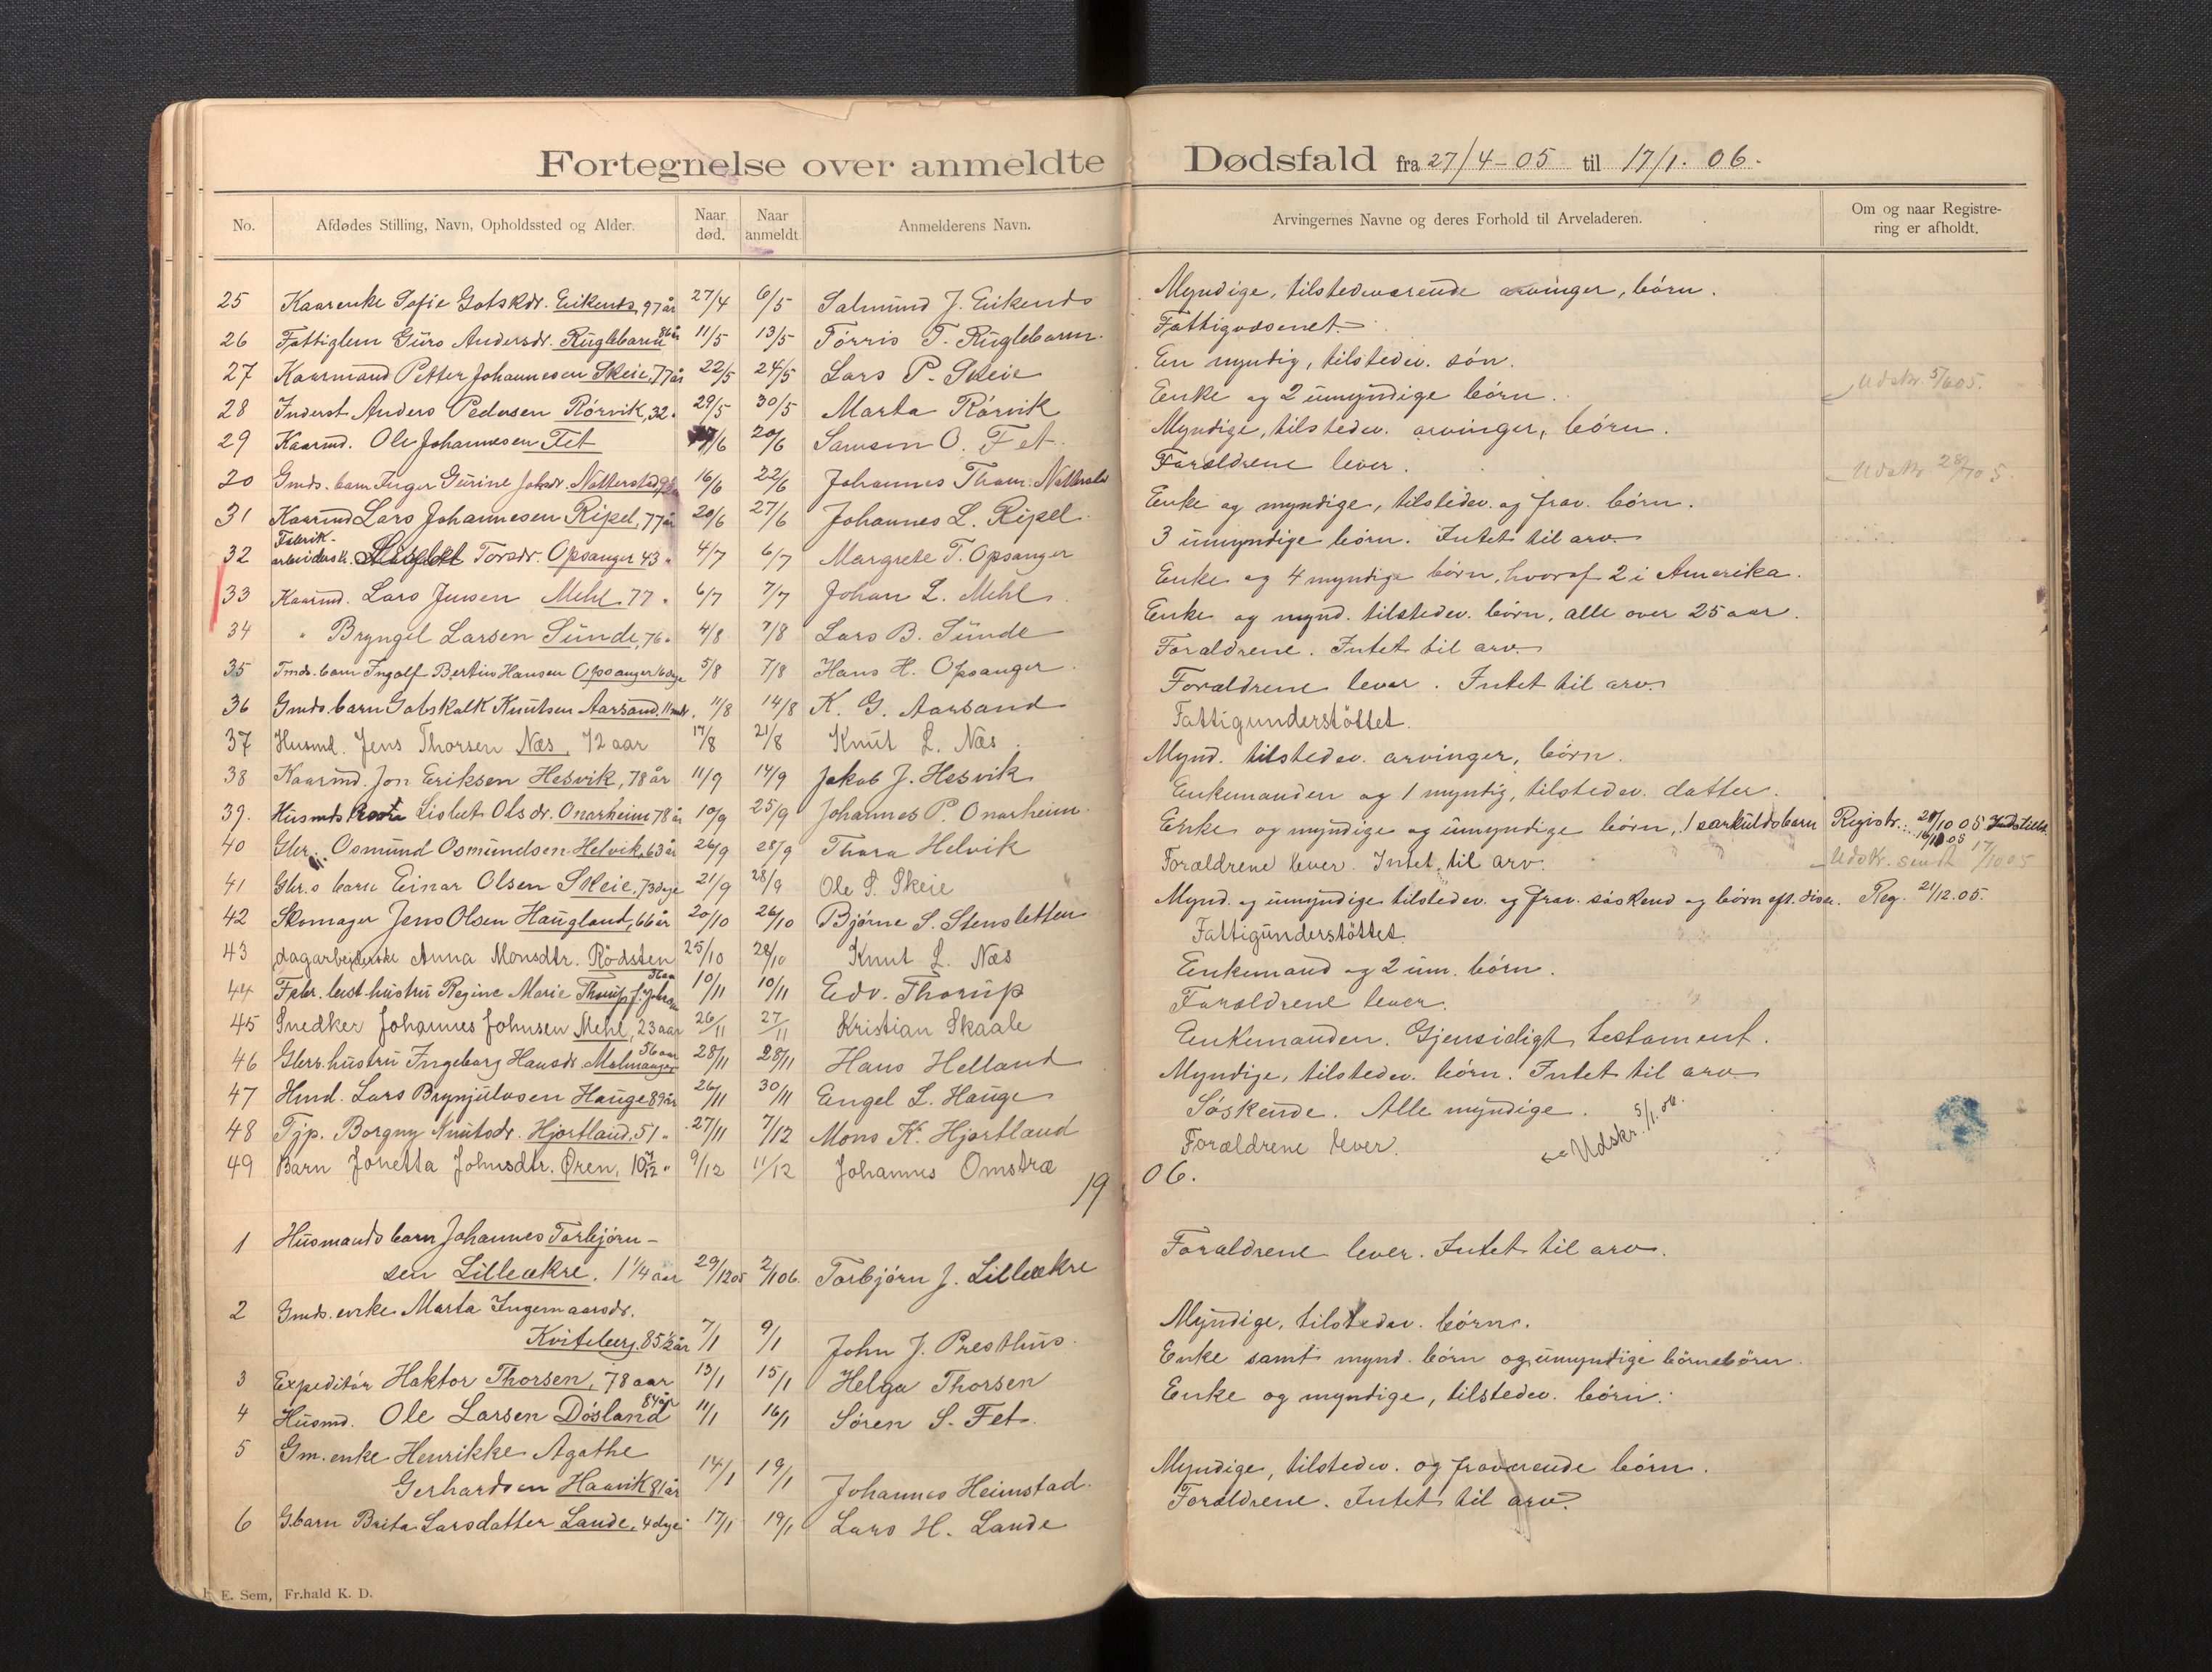 Fortegnelse over anmeldte Dødsfald fra 27/4-05 til 17/1. 06.
No. Afdødes Stilling, Navn, Opholdssted og Alder. Naar død. Naar anmeldt Anmelderens Navn. Arvingernes Navne og deres Forhold til Arveladeren. Om og naar Registrering er afholdt.
25 Kaarenke Sofie Gotskdr. Eikenes, 97 år 27/4 6/5 Salmund J. Eikenes Myndige, tilstedeværende arvinger, börn.
26 Fattiglem Guro Andersdr. Ruglebarm 11/5 13/5 Törris T. Ruglebarm. Fattigvæsenet.
27 Kaarmand Petter Johannesen Skeie, 77 år 22/5 24/5 Lars P. Skeie En myndig, tilstedev. sön.
28 Inderst Anders Pedersen Rörvik, 32 " 29/5 30/5 Marta Rörvik Enke og 2 umyndige börn. Udskr. 5/6 05.
29 Kaarmd. Ole Johannesen Fet /6 20/6 Samson O. Fet. Myndige, tilstedev. arvinger, börn.
30 Gmds. barn Inger Gurine Johsdr. Natterstad 16/6 22/6 Johannes Thom. Natterstad Forældrene lever. Udskr.
31 Kaarmd Lars Johannesen Ripel, 77 år 20/6 27/6 Johannes L. Ripel. Enke og myndige, tilstedev. og frav. börn.
Fabrik-
32 arbeidersk. Torsdr. Opsanger 43 " 4/7 6/7 Margrete T. Opsanger 3 umyndige börn. Intet til arv.
33 Kaarmd. Lars Jensen Mehl 77 " 6/7 7/7 Johan L. Mehl Enke og 4 myndige börn, hvoraf 2 i Amerika.
34 " Bryngel Larsen Sunde, 76 " 4/8 7/8 Lars B. Sunde Enke og mynd. tilstedev. börn, alle over 25 aar.
35 Tmds. barn Ingolf Bertin Hansen Opsanger 16 dge 5/8 7/8 Hans H. Opsanger Forældrene. Intet til arv.
36 Gmds. barn Gotskalk Knutsen Aarsand, 11 mdr. 11/8 14/8 K. G. Aarsand Forældrene lever. Intet til arv.
37 Husmd. Jens Thorsen Næs, 72 aar 17/8 21/8 Knut L. Næs Fattigunderstöttet.
38 Kaarmd. Jon Eriksen Hesvik, 78 år 11/9 14/9 Jakob J. Hesvik Mynd. tilstedev. arvinger, börn.
39. Husmds Lisbet Olsdr. Onarheim 78 år 10/9 25/9 Johannes P. Onarheim Enkemanden og 1 myndig, tilstedev. datter.
40 Gbr. Osmund Osmundsen Helvik, 63 år 26/9 28/9 Thora Helvik Enke og myndige og umyndige börn, 1 særkuldsbarn Registr.: /10 05
41 Gbr.s barn Einar Olsen Skeie, 73 dge 21/9 28/9 Ole S. Skeie Forældrene lever. Intet til arv. Udskr. sendt 17/10 05
42 Skomager Jens Olsen Haugland, 66 år 20/10 26/10 Bjørne S. Stensletten Mynd. og umyndige tilstedev. og frav. söskend og börn eft. disse. Reg. 21/12.05.
43 dagarbejderske Anna Monsdtr. Rödsten 25/10 28/10 Knut L. Næs Fattigunderstöttet.
44 Fabr. best. hustru Regine Marie Thorup f. 10/11 10/11 Edv. Thorup Enkemand og 2 um. börn.
45 Snedker Johannes Johnsen Mehl, 23 aar 26/11 27/11 Kristian Skaale Forældrene lever.
46 Gbrs. hustru Ingeborg Hansdr. Malmanger 56 aar 28/11 28/11 Hans Helland Enkemanden. Gjensidigt testament.
47 Hmd. Lars Brynjulvsen Hauge 89 år 26/11 30/11 Engel L. Hauge Myndige, tilstedev. börn. Intet til arv
48 Tjp. Borgny Knutsdr. Hjortland, 51 " 27/11 7/12 Mons K. Hjortland Söskende. Alle myndige. Udskr. 5/1. 06.
49 Barn Jonetta Johnsdtr. Øren, 10 " 9/12 11/12 Johannes Omstræ Forældrene lever.
1906.
1 Husmands barn Johannes Torbjörn-
sen Lilleækre. 1 1/4 aar 29/12 05 2/1 06. Torbjörn J. Lilleækre Forældrene lever. Intet til arv.
2 Gmds. enke Marta Ingemaarsdr.
Kviteberg. 85 1/2 år 7/1 9/1 John J. Presthus. Myndige, tilstedev. börn.
3 Expeditör Haktor Thorsen, 78 aar 13/1 15/1 Helga Thorsen Enke samt mynd. börn og umyndige börnebörn.
4 Husmd. Ole Larsen Dösland 84 år 11/1 16/1 Sören S. Fet. Enke og myndige, tilstedev. börn.
5 Gm. enke Henrikke Agathe
Gerhardsen Haavik 81 år 14/1 19/1 Johannes Heimstad. Myndige, tilstedev. og fraværende börn.
6 G.barn Brita Larsdatter Lande, 4 dge 17/1 19/1 Lars H. Lande Forældrene. Intet til arv.
E. Sem, Fr.hald K. D.